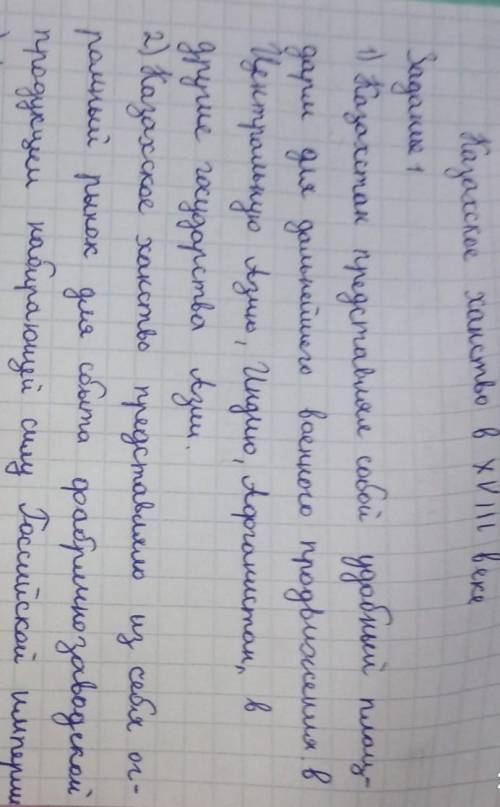 Казахское ханство в XVIII веке
Задание 1
1) Казахстан представлял собой удобный плац-
дарм для дальнейшего военного продвижения в
Центральную Азию, Индию, Афганистан, в
другие государства Азии.
2) Казахское ханство представляло из себя ог-
ромный рынок для сбыта фабричнозаводской
продукции набирающей силу Российской империи